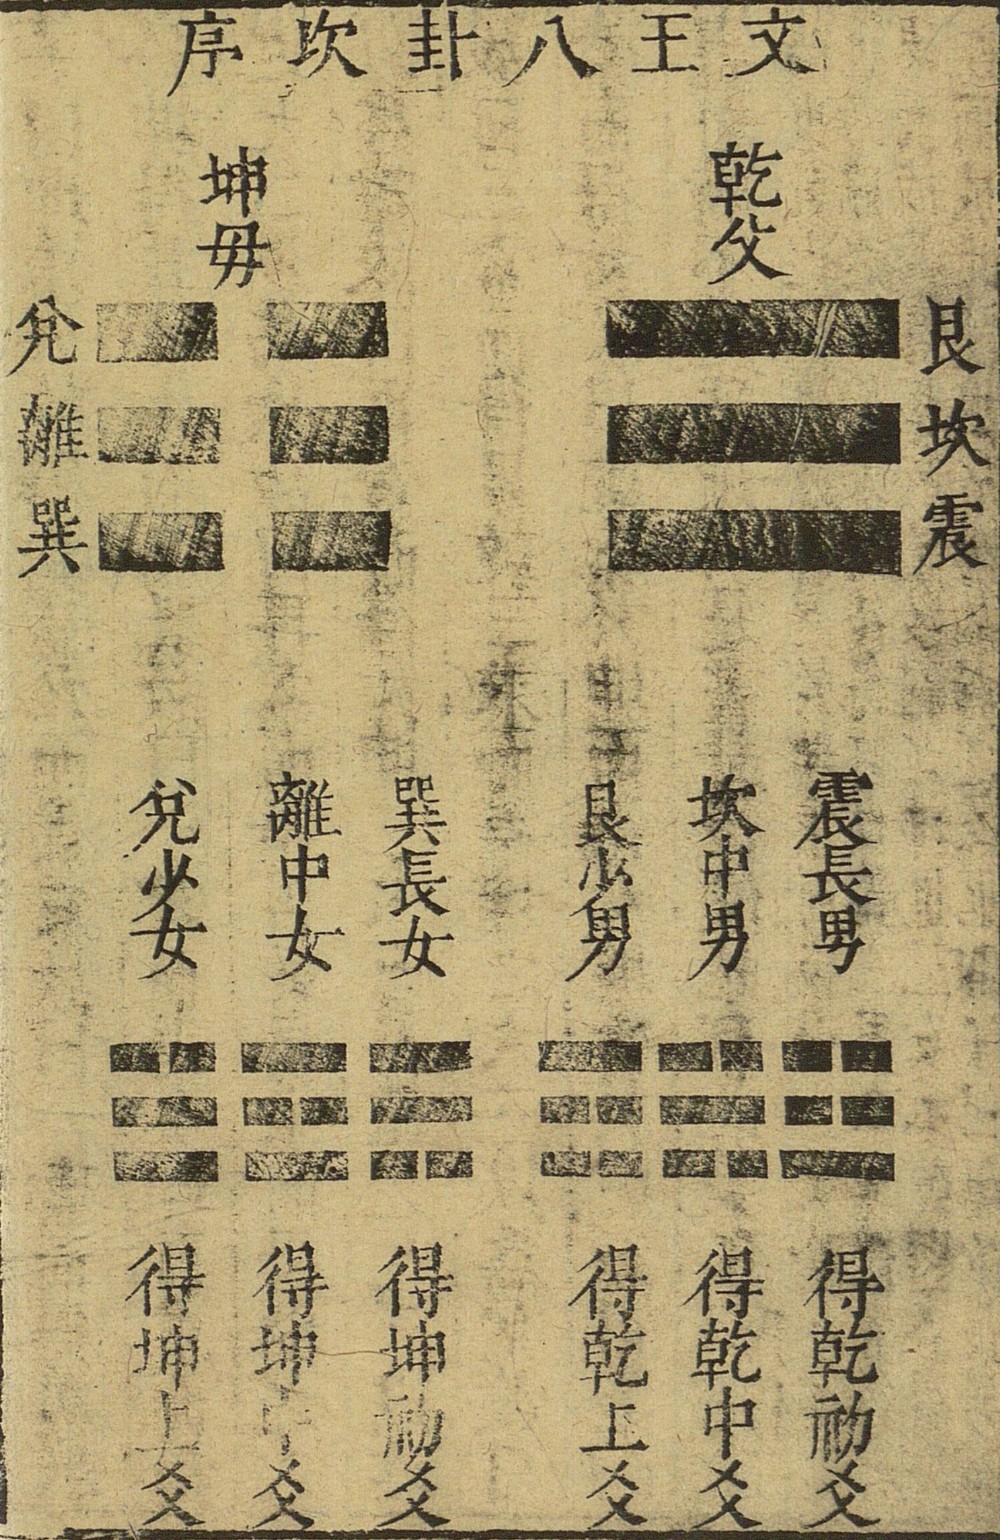 文王八卦次序
乾父
坤母
艮
坎
震
兌
離
巽
震長男
坎中男
艮少男
巽長女
離中女
兌少女
得乾初爻
得乾中爻
得乾上爻
得坤初爻
得坤中爻
得坤上爻